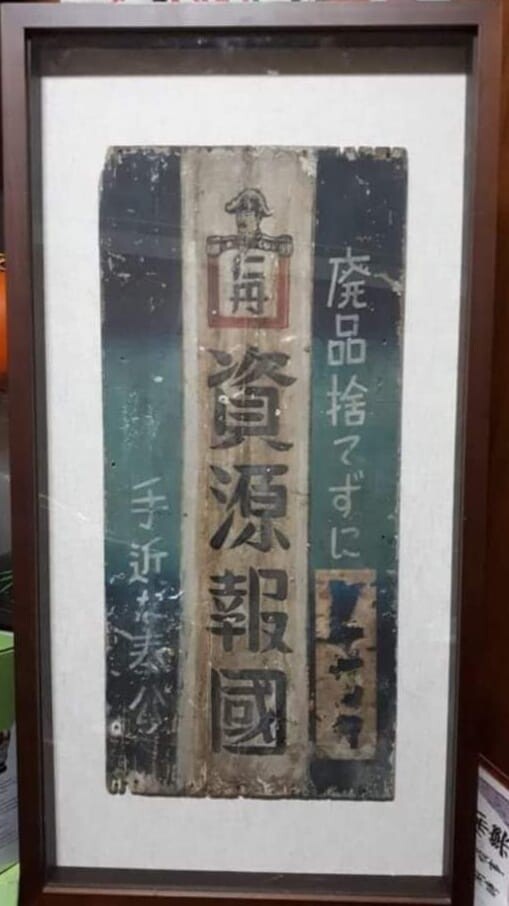 廃品捨てずに
仁丹
資源報國
手近な奉公